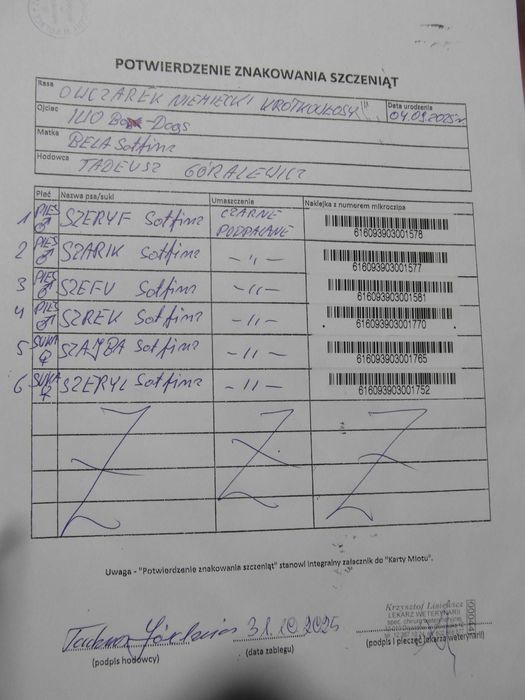 POTWIERDZENIE ZNAKOWANIA SZCZENIĄT
Rasa OWCZAREK NIEMIECKI KRÓTKOWŁOSY Data urodzenia 04.09.2025r
Ojciec ILIO Dogs
Matka BELA Solfina
Hodowca TADEUSZ GÓRALEWICZ
Płeć Nazwa psa/suki Umaszczenie Naklejka z numerem mikroczipa
1 PIES ♂ SZERYF Solfina CZARNE PODPALANE 616093903001578
2 PIES ♂ SZARIK Solfina -"- 616093903001577
3 PIES ♂ SZEFU Solfina -"- 616093903001581
4 PIES ♂ SZREK Solfina -"- 616093903001770
5 SUKA ♀ SZAJBA Solfina -"- 616093903001765
6 SUKA ♀ SZERYL Solfina -"- 616093903001752
Uwaga - "Potwierdzenie znakowania szczeniąt" stanowi integralny załącznik do "Karty Miotu".
Krzysztof
LEKARZ WETERYNARII
Tadeusz 31.10.2025
(podpis hodowcy) (data zabiegu) (podpis i pieczęć lekarza weterynarii)